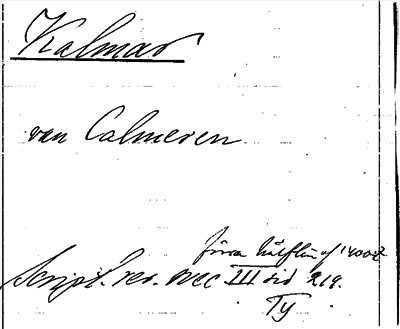 Kalmar
van Calmeren
förra hälften af 1400-t
Script. rer. svec III sid 219.
Ty